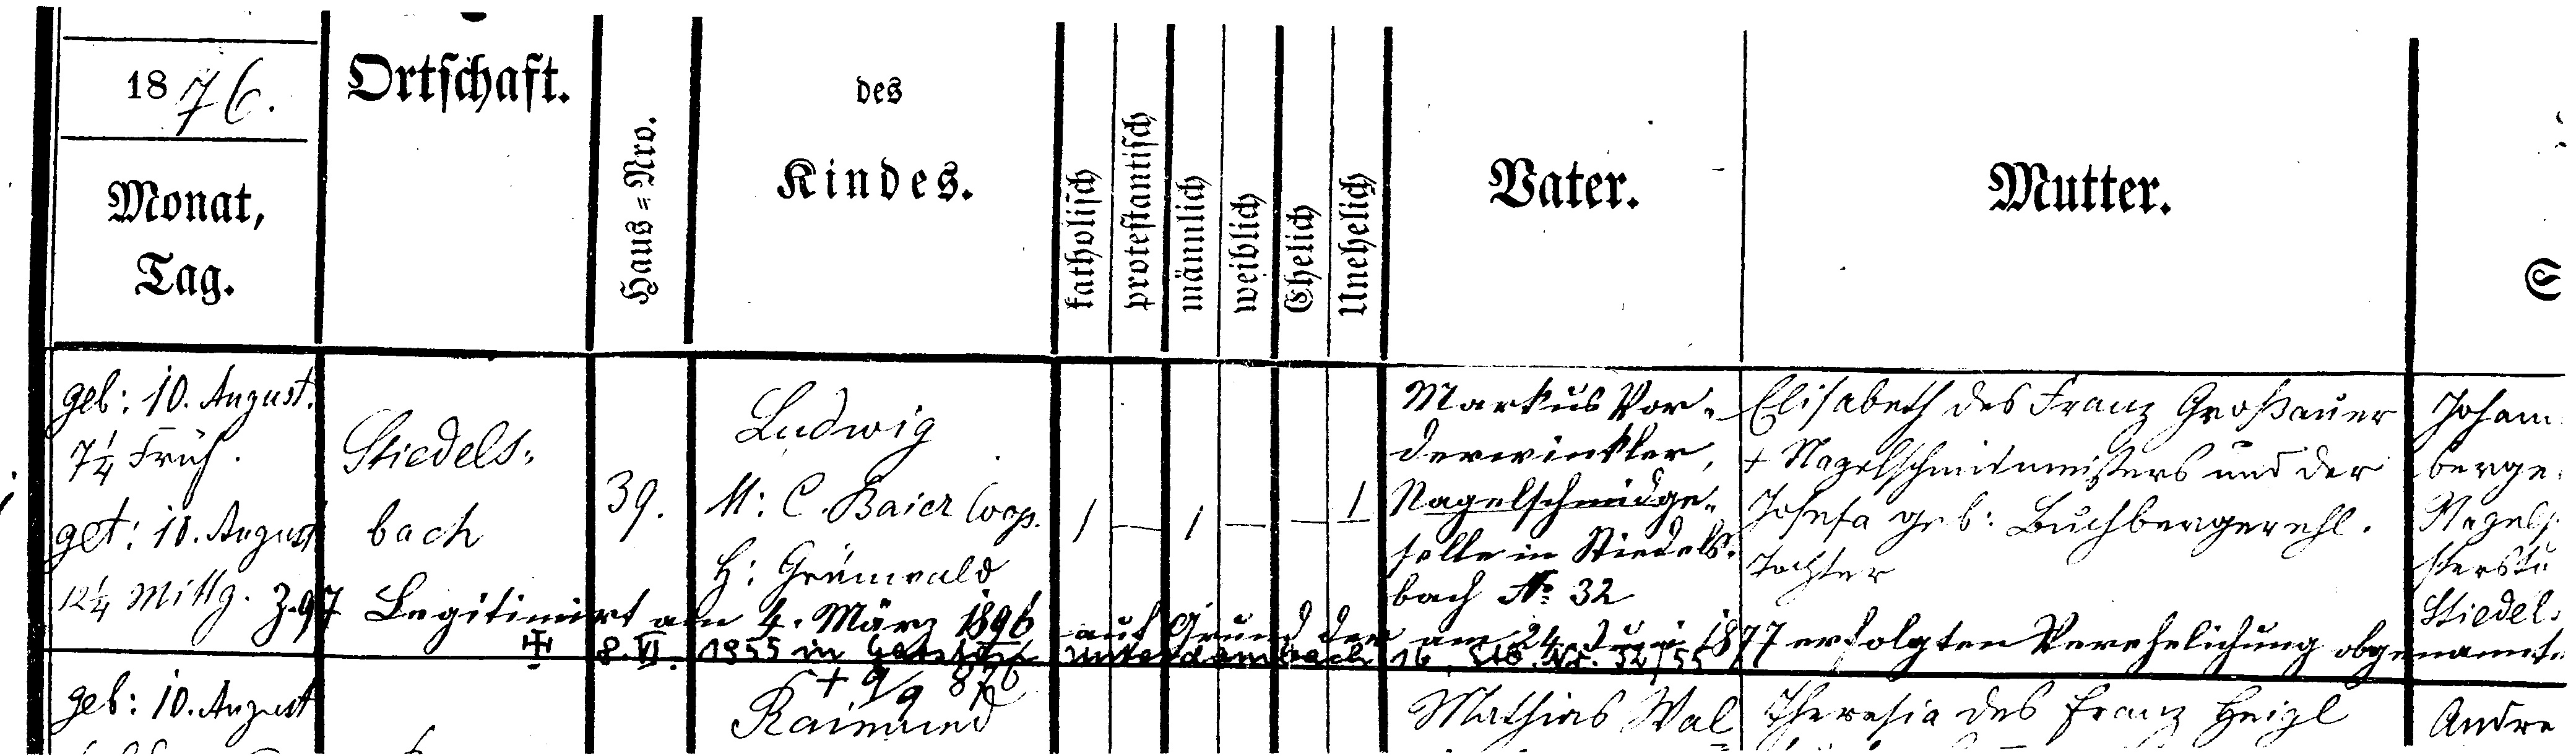 1876.
Monat,
Tag.
Ortschaft.
Haus=Nro.
des
Kindes.
katholisch
protestantisch
männlich
weiblich
Ehelich
Unehelich
Vater.
Mutter.
geb: 10. August.
7¼ Früh.
get: 10. August
12¼ Mittg.
Stiedels=
bach
39.
Ludwig
M: C. Baier Coop.
H: Grünwald
1 — 1 — — 1
Markus Vor=
derwinkler,
Nagelschmidge=
selle in Stiedels=
bach No 32
Elisabeth des Franz Großauer
+ Nagelschmidmeisters und der
Josefa geb: Buchberger ehl.
Tochter
Johann
berge
Nagels
sters
Stiedel=
Z. 97 Legitimirt am 4. März 1896 auf Grund der am 24. Juni 1877 erfolgten Verehelichung obgenannte
8. VI. 1955 in Unterdambach 16, Nr. 32/55
+ 9/9 876
geb: 10. August
Raimund
Mathias Wal
Theresia des Franz Heigl
Andre